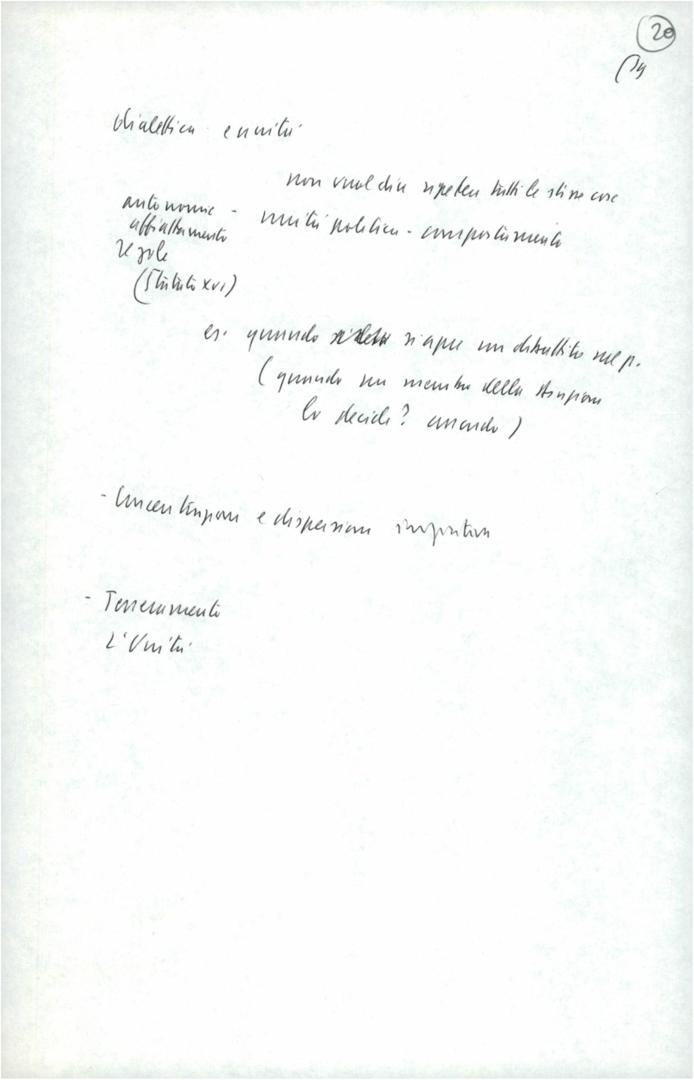 20
dialettica e unità
non vuol dire ripetere tutti le stesse cose
autonomie - unità politica - comportamento
affiattamento
regole
(Statuto XVI)
es. quando si apre un dibattito sul p.
(quando un membro della
lo decide? quando)
- Concentrazione e dispersione
- Tesseramento
L'Unità